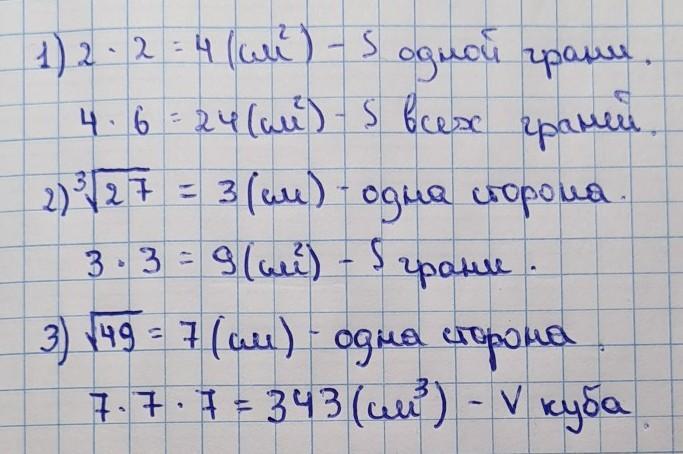 1) 2 · 2 = 4 (см²) – S одной грани.
4 · 6 = 24 (см²) – S всех граней.
2) ³√27 = 3 (см) – одна сторона.
3 · 3 = 9 (см²) – S грани.
3) √49 = 7 (см) – одна сторона.
7 · 7 · 7 = 343 (см³) – V куба.